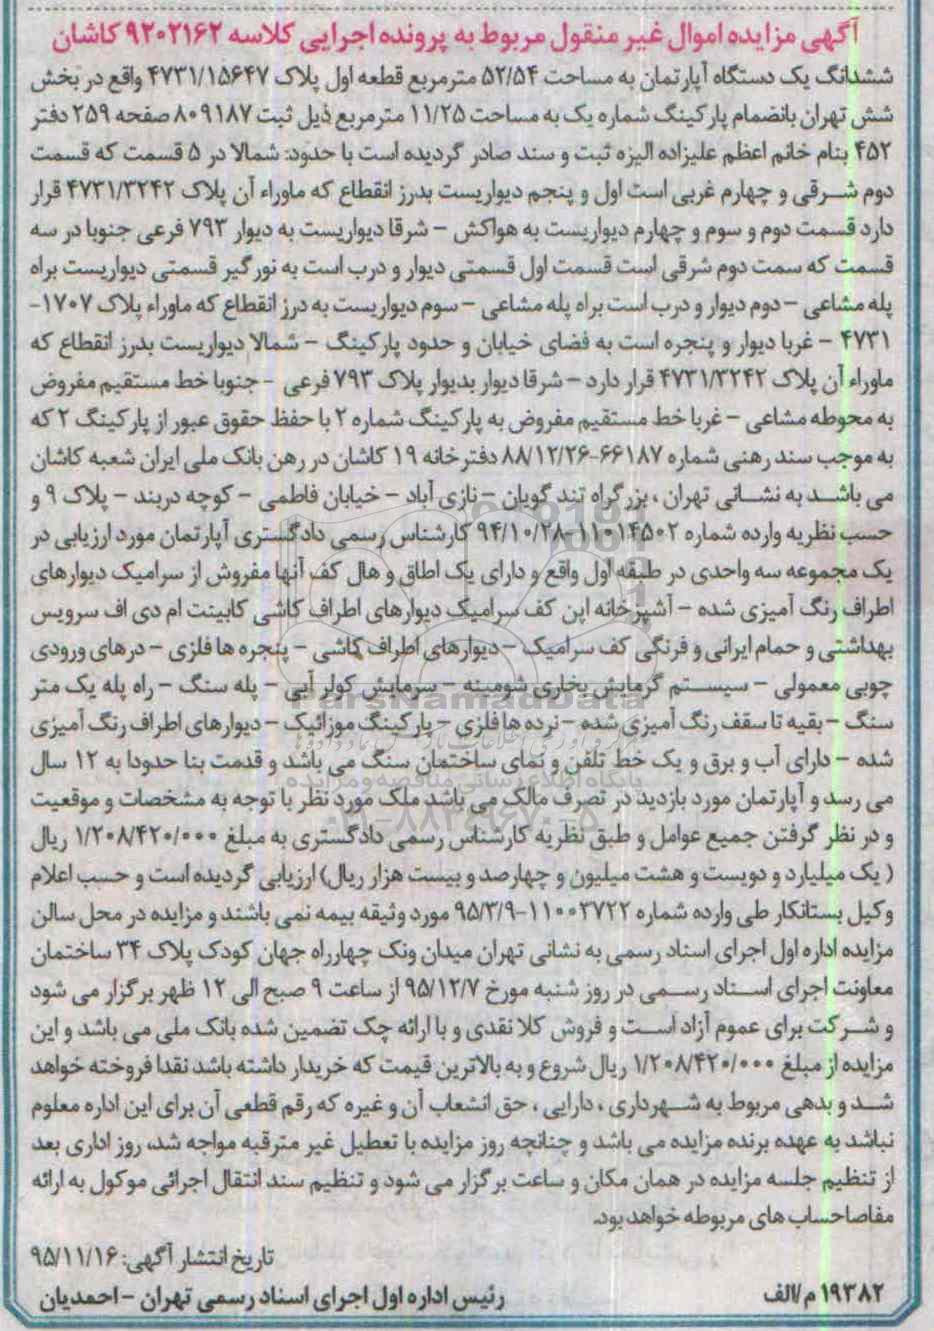 آگهی مزایده اموال غیر منقول مربوط به پرونده اجرایی کلاسه ۹۲۰۲۱۶۲ کاشان
ششدانگ یک دستگاه آپارتمان به مساحت ۵۲/۵۴ مترمربع قطعه اول پلاک ۴۷۳۱/۱۵۶۴۷ واقع در بخش
شش تهران بانضمام پارکینگ شماره یک به مساحت ۱۱/۲۵ مترمربع ذیل ثبت ۸۰۹۱۸۷ صفحه ۲۵۹ دفتر
۴۵۲ بنام خانم اعظم علیزاده الیزه ثبت و سند صادر گردیده است با حدود: شمالا در ۵ قسمت که قسمت
دوم شرقی و چهارم غربی است اول و پنجم دیواریست بدرز انقطاع که ماوراء آن پلاک ۴۷۳۱/۳۲۴۲ قرار
دارد قسمت دوم و سوم و چهارم دیواریست به هواکش – شرقا دیواریست به دیوار ۷۹۳ فرعی جنوبا در سه
قسمت که سمت دوم شرقی است قسمت اول قسمتی دیوار و درب است به نور گیر قسمتی دیواریست براه
پله مشاعی – دوم دیوار و درب است براه پله مشاعی – سوم دیواریست به درز انقطاع که ماوراء پلاک ۱۷۰۷-
۴۷۳۱ – غربا دیوار و پنجره است به فضای خیابان و حدود پارکینگ – شمالا دیواریست بدرز انقطاع که
ماوراء آن پلاک ۴۷۳۱/۳۲۴۲ قرار دارد – شرقا دیوار بدیوار پلاک ۷۹۳ فرعی – جنوبا خط مستقیم مفروض
به محوطه مشاعی – غربا خط مستقیم مفروض به پارکینگ شماره ۲ با حفظ حقوق عبور از پارکینگ ۲ که
به موجب سند رهنی شماره ۶۶۱۸۷-۸۸/۱۲/۲۶ دفترخانه ۱۹ کاشان در رهن بانک ملی ایران شعبه کاشان
می باشد به نشانی تهران ، بزرگراه تند گویان – نازی آباد – خیابان فاطمی – کوچه دربند – پلاک ۹ و
حسب نظریه وارده شماره ۱۱۰۱۴۵۰۲-۹۴/۱۰/۲۸ کارشناس رسمی دادگستری آپارتمان مورد ارزیابی در
یک مجموعه سه واحدی در طبقه اول واقع و دارای یک اطاق و هال کف آنها مفروش از سرامیک دیوارهای
اطراف رنگ آمیزی شده – آشپزخانه اپن کف سرامیک دیوارهای اطراف کاشی کابینت ام دی اف سرویس
بهداشتی و حمام ایرانی و فرنگی کف سرامیک – دیوارهای اطراف کاشی – پنجره ها فلزی – درهای ورودی
چوبی معمولی – سیستم گرمایش بخاری شومینه – سرمایش کولر آبی – پله سنگ – راه پله یک متر
سنگ – بقیه تا سقف رنگ آمیزی شده – نرده ها فلزی – پارکینگ موزائیک – دیوارهای اطراف رنگ آمیزی
شده – دارای آب و برق و یک خط تلفن و نمای ساختمان سنگ می باشد و قدمت بنا حدودا به ۱۲ سال
می رسد و آپارتمان مورد بازدید در تصرف مالک می باشد ملک مورد نظر با توجه به مشخصات و موقعیت
و در نظر گرفتن جمیع عوامل و طبق نظریه کارشناس رسمی دادگستری به مبلغ ۱/۲۰۸/۴۲۰/۰۰۰ ریال
( یک میلیارد و دویست و هشت میلیون و چهارصد و بیست هزار ریال) ارزیابی گردیده است و حسب اعلام
وکیل بستانکار طی وارده شماره ۱۱۰۰۳۷۲۲-۹۵/۳/۹ مورد وثیقه بیمه نمی باشند و مزایده در محل سالن
مزایده اداره اول اجرای اسناد رسمی به نشانی تهران میدان ونک چهارراه جهان کودک پلاک ۳۴ ساختمان
معاونت اجرای اسناد رسمی در روز شنبه مورخ ۹۵/۱۲/۷ از ساعت ۹ صبح الی ۱۲ ظهر برگزار می شود
و شرکت برای عموم آزاد است و فروش کلا نقدی و با ارائه چک تضمین شده بانک ملی می باشد و این
مزایده از مبلغ ۱/۲۰۸/۴۲۰/۰۰۰ ریال شروع و به بالاترین قیمت که خریدار داشته باشد نقدا فروخته خواهد
شد و بدهی مربوط به شهرداری ، دارایی ، حق انشعاب آن و غیره که رقم قطعی آن برای این اداره معلوم
نباشد به عهده برنده مزایده می باشد و چنانچه روز مزایده با تعطیل غیر مترقبه مواجه شد، روز اداری بعد
از تنظیم جلسه مزایده در همان مکان و ساعت برگزار می شود و تنظیم سند انتقال اجرائی موکول به ارائه
مفاصاحساب های مربوطه خواهد بود.
تاریخ انتشار آگهی: ۹۵/۱۱/۱۶
۱۹۳۸۲ م/الف
رئیس اداره اول اجرای اسناد رسمی تهران – احمدیان
ParsNamadData
پایگاه اطلاع رسانی مناقصه و مزایده
۰۲۱-۸۸۳۴۹۶۷۰-۵